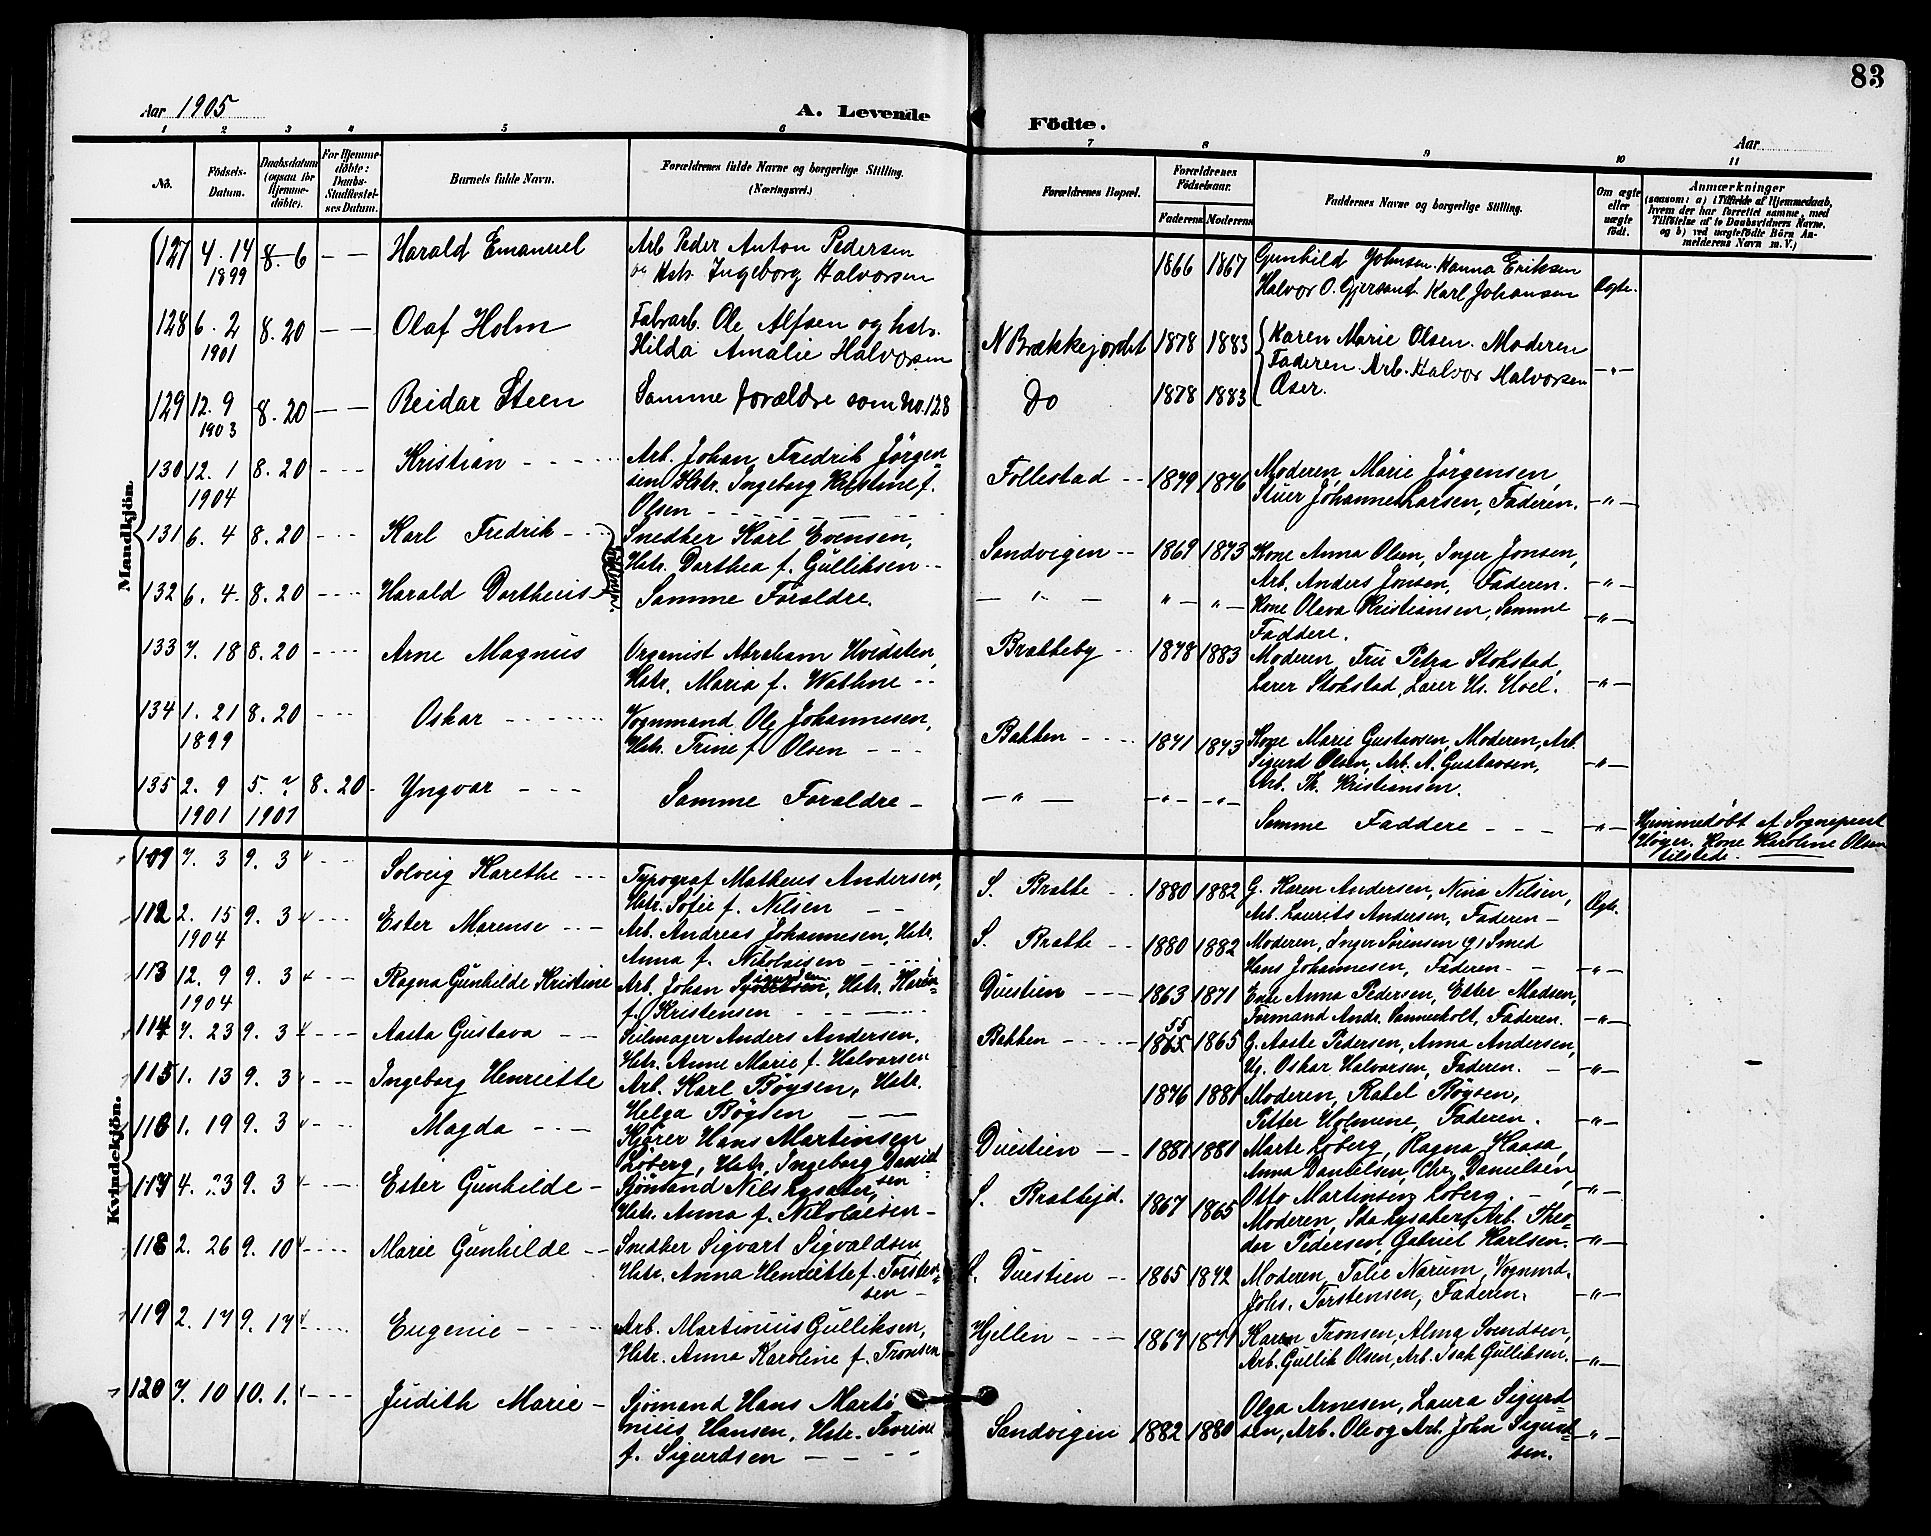 83
Aar 1905
A. Levende
Födte.
Aar
1 2 3 4 5 6 7 8 9 10 11
No.
Födsels-
Datum.
Daabsdatum
(ogsaa for
Hjemme-
döbte).
For Hjemme-
döbte:
Daabs-
Stadfæstel-
ses Datum.
Barnets fulde Navn.
Forældrenes fulde Navne og borgerlige Stilling.
(Næringsvei.)
Forældrenes Bopæl.
Forældrenes
Födselsaar.
Faderens Moderens
Faddernes Navne og borgerlige Stilling.
Om ægte
eller
uægte
födt.
Anmærkninger
(saasom: a) i Tilfælde af Hjemmedaab,
hvem der har forrettet samme, med
Tilföielse af to Daabsvidners Navne,
og b) ved uægtefödte Börn An-
melderens Navn m. V.)
Mandkjön
127 4. 14 8. 6 — — Harald Emanuel Arb Peder Anton Pedersen 1866 1867 Gunhild Johnsen. Hanna Eriksen
1899 og Hstr Ingeborg Halvorsen Halvor O. Karl Johansen Ægte.
128 6. 2 8. 20 — — Olaf Holm Fabrarb. Ole Alfsen og hstr. N Brækkejordet 1878 1883 Karen Marie Olsen. Moderen
1901 Hilda Amalie Halvorsen Faderen Arb. Halvor Halvorsen — " —
129 12. 9 8. 20 — — Reidar Steen Samme forældre som No. 128 Do 1878 1883 Oser.
1903
130 12. 1 8. 20 Kristian Arb. Johan Fredrik Jörgen Follestad 1879 1876 Moderen, Marie Jörgensen,
1904 sen, Hstr. Ingeborg Kristine f. Stuer Johannes Larsen, Faderen. — " —
Olsen
131 6. 4 8. 20 Karl Fredrik Snedker Karl Evensen, Sandvigen 1869 1873 Kone Anna Olsen, Inger Jonsen,
Hstr. Dorthea f. Gulliksen Arb. Anders Jonsen, Faderen. — " —
132 6. 4. 8. 20 Harald Dortheus Samme Foraldre. — " — " — " — Kone Olava Kristiansen, Samme
Faddere. — " —
133 7. 18 8. 20 Arne Magnus Organist Abraham Hvidsten, Bratteby 1878 1883 Moderen, Fru Petra Stokstad,
Hstr. Maria f. Wathne Lærer Stokstad, Lærer Hs. Hoel. — " —
134 1. 21 8. 20 Oskar Vognmand Ole Johannesen, Bakken 1871 1873 Kone Marie Gustavsen, Moderen, Arb.
1899 Hstr. Trine f. Olsen Sigurd Olsen, Arb. A. Gustavsen, — " —
Arb. Th. Kristiansen.
135 2. 9 5. ? 8. 20 Yngvar Samme Foraldre — " — — " — — " — Samme Faddere — " — Hjemmedöbt af Sogneprest
1901 1901 Höyer. Kone Karoline Olsen
tilstede.
Kvindekjön.
7. 3 9. 3 Solveig Karethe Typograf Matheus Andersen, S. Bratte 1880 1882 G. Karen Andersen, Nina Nilsen,
Hstr. Sofie f. Nilsen Arb. Laurits Andersen, Faderen Ægte.
112 2. 15 9. 3 Ester Marense Arb. Andreas Johannesen, Hstr. S. Bratte 1880 1882 Moderen, Inger Sörensen, G. Smed
1904 Anna f. Nikolaisen Hans Johannesen, Faderen. — " —
113 12. 9 9. 3 Ragna Gunhilde Kristine Arb. Johan Hstr. Karen Duestien 1863 1871 Enke Anna Pedersen, Ester Madsen,
1904 f. Kristensen Andr. Faderen. — " —
114 7. 23 9. 3 Aasta Gustava Seilmager Anders Andersen, Bakken 1865 55 1865 G. Aaste Pedersen, Anna Andersen,
Hstr. Anne Marie f. Halvorsen Ug. Oskar Halvorsen, Faderen. — " —
115 1. 13 9. 3 Ingeborg Henriette Arb. Karl Böysen, Hstr. 1876 1881 Moderen, Rakel Böysen,
Helga Böysen Petter Holmene, Faderen. — " —
116 1. 19 9. 3 Magda Kjörer Hans Martinsen Duestien 1881 1881 Marte Löberg, Ragna Haasa,
Löberg, Hstr. Ingeborg Daniel Anna Danielsen, Chr. Danielsen,
sen Otto Martinsen Löberg. — " —
117 4. 23 9. 3 Ester Gunhilde Sjömand Nils Lysaker, S. Brattejd. 1867 1865 Moderen, Ida Lysaker, Arb. Theo-
Hstr. Anna f. Nikolaisen dor Pedersen, Gabriel Karlsen. — " —
118 2. 26 9. 10 Marie Gunhilde Snedker Sigvart Sigvaldsen, S. Duestien 1865 1872 Moderen, Talie Narum, Vognmd.
Hstr. Anna Henriette f. Torsten Johs. Torstensen, Faderen. — " —
sen
119 2. 17 9. 17 Eugenie Arb. Martinius Gulliksen, Hjellen 1867 1871 Karen Tronsen, Alma Svendsen,
Hstr. Anna Karoline f. Tronsen Arb. Gullik Olsen, Arb. Isak Gulliksen. — " —
120 7. 10 10. 1. Judith Marie Sjömand Hans Marti Sandvigen 1882 1880 Olga Arnesen, Laura Sigurd
nius Hansen, Hstr. Severine sen, Arb. Ole og Arb. John Sigurd — " —
f. Sigurdsen sen.